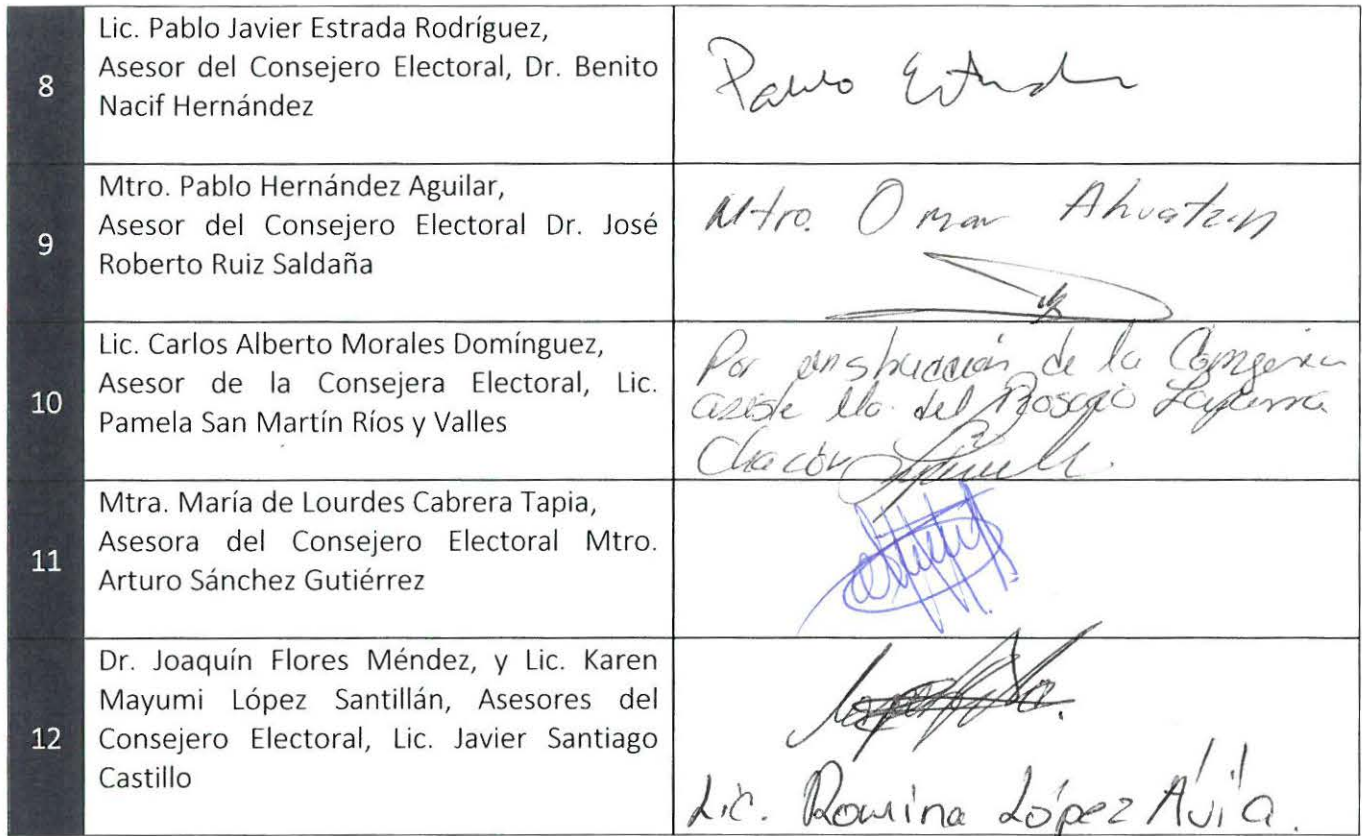 8
Lic. Pablo Javier Estrada Rodríguez,
Asesor del Consejero Electoral, Dr. Benito
Nacif Hernández
Pablo Estrada
9
Mtro. Pablo Hernández Aguilar,
Asesor del Consejero Electoral Dr. José
Roberto Ruiz Saldaña
Mtro. Omar Ahuatzin
10
Lic. Carlos Alberto Morales Domínguez,
Asesor de la Consejera Electoral, Lic.
Pamela San Martín Ríos y Valles
Por instrucción de la
asiste Ma. del Rosario
Chacón
11
Mtra. María de Lourdes Cabrera Tapia,
Asesora del Consejero Electoral Mtro.
Arturo Sánchez Gutiérrez
12
Dr. Joaquín Flores Méndez, y Lic. Karen
Mayumi López Santillán, Asesores del
Consejero Electoral, Lic. Javier Santiago
Castillo
Lic. Romina López Ávila.